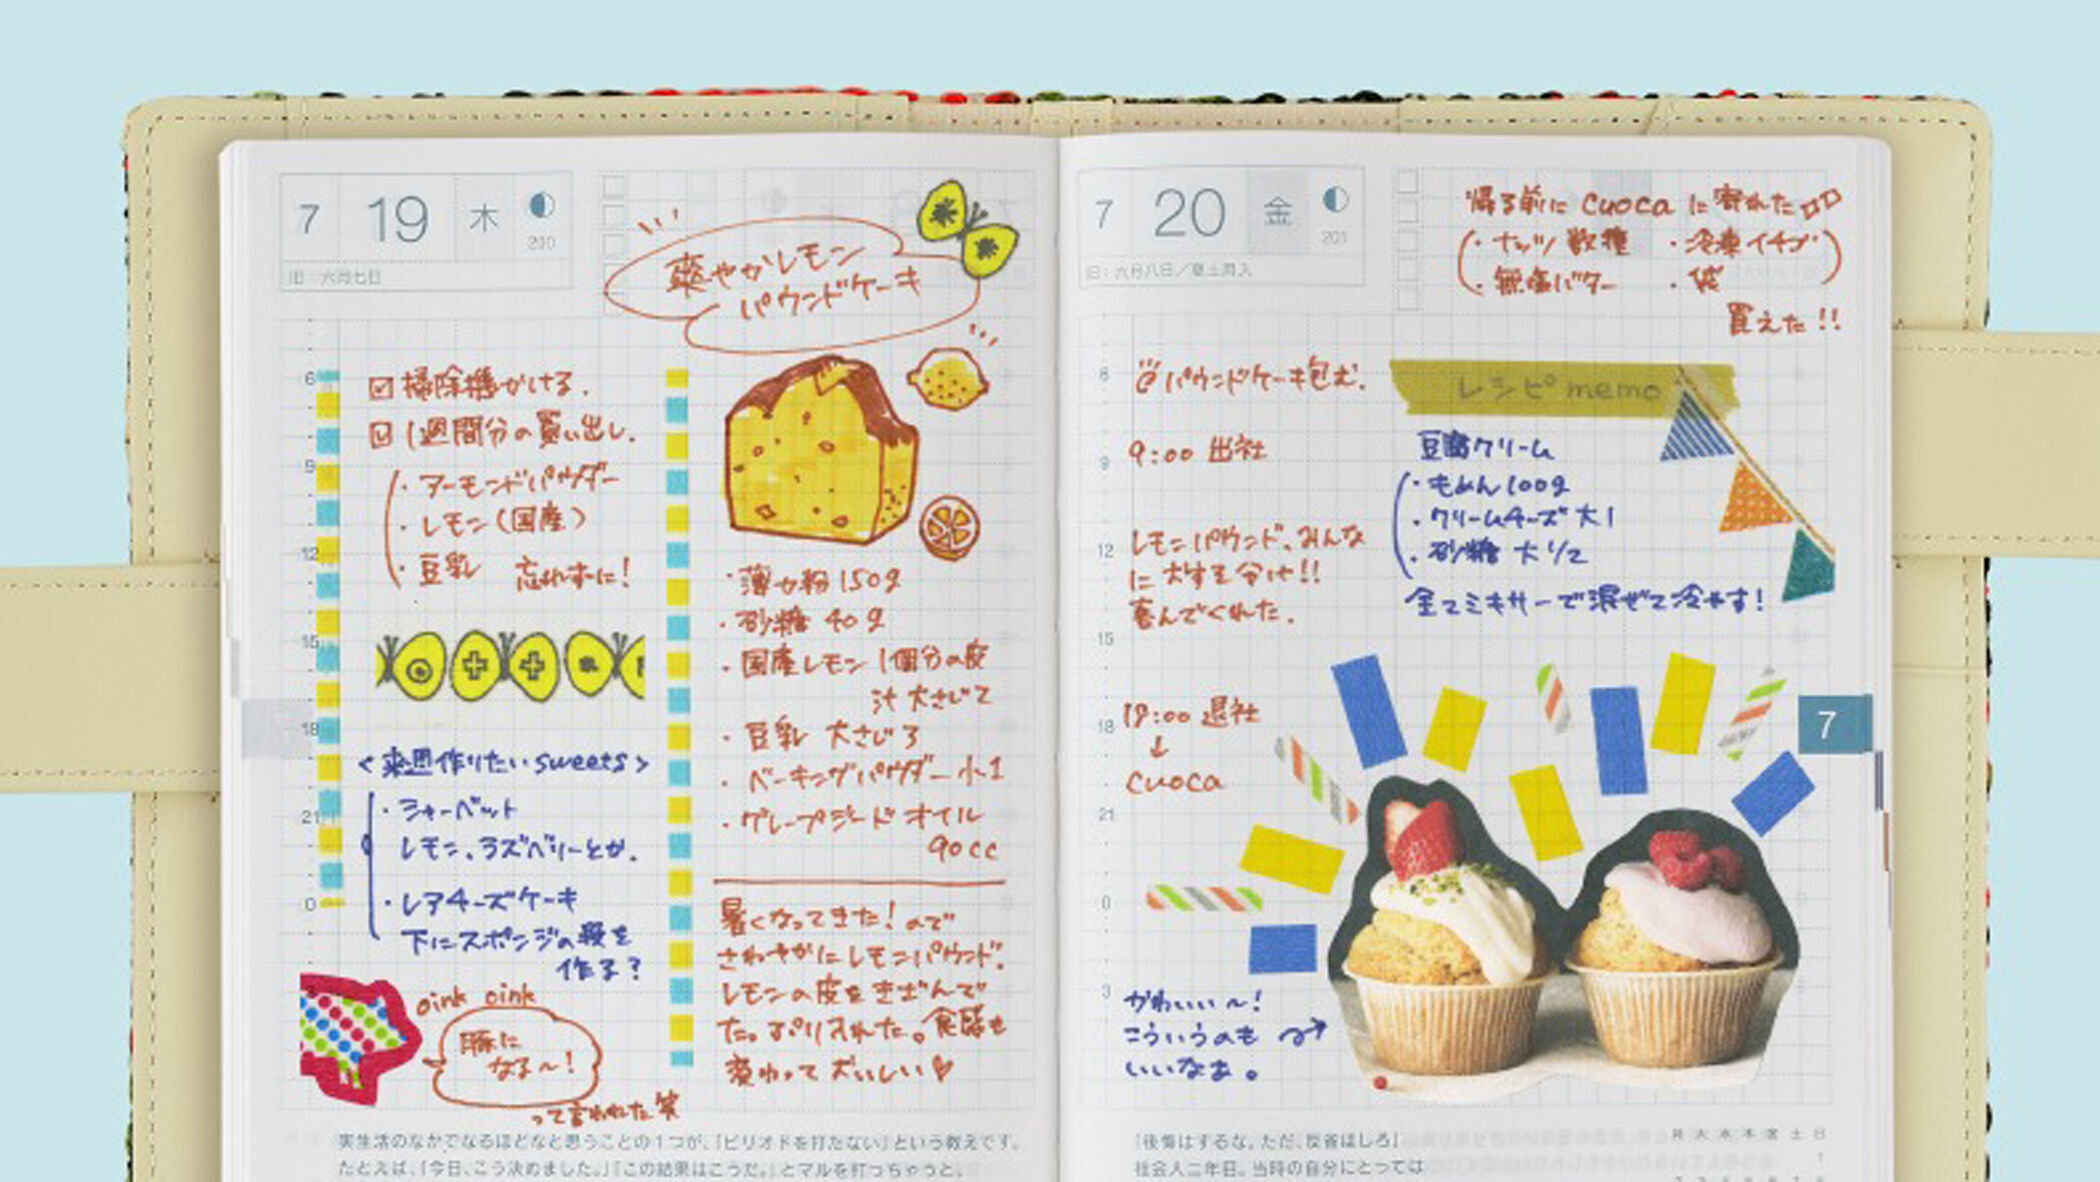 7 19 木
200
旧：六月七日
爽やかレモン
パウンドケーキ
6
9
12
15
18
21
0
掃除機かける.
1週間分の買い出し.
・アーモンドパウダー
・レモン(国産)
・豆乳 忘れずに!
<来週作りたいsweets>
・シャーベット
レモン、ラズベリーとか.
・レアチーズケーキ
下にスポンジの段を
作る?
oink oink
豚に
なる〜!
って言われた笑
・薄力粉 150g
・砂糖 40g
・国産レモン 1個分の皮
汁 大さじ2
・豆乳 大さじ3
・ベーキングパウダー 小1
・グレープシードオイル
90cc
暑くなってきた!ので
さわやかにレモンパウンド.
レモンの皮をきざんで
食感も
変わっておいしい♡
実生活のなかでなるほどなと思うことの1つが、「ピリオドを打たない」という教えです。
たとえば、「今日、こう決めました。」「この結果はこうだ。」とマルを打っちゃうと、
7 20 金
201
旧：六月八日／夏土用入
帰る前に cuoca に寄れた
・ナッツ数種 ・冷凍イチゴ
・無塩バター ・袋
買えた!!
6
9
12
15
18
21
0
3
パウンドケーキ包む.
9:00 出社
レモンパウンド、みんな
におすそ分け!!
喜んでくれた.
18:00 退社
↓
cuoca
レシピmemo
豆腐クリーム
・もめん100g
・クリームチーズ 大1
・砂糖 大1/2
全てミキサーで混ぜて冷やす!
7
かわいい〜!
こういうのも
いいなぁ。
「後悔はするな。ただ、反省はしろ」
社会人二年目。当時の自分にとっては
月 火 水 木 金 土 日
1